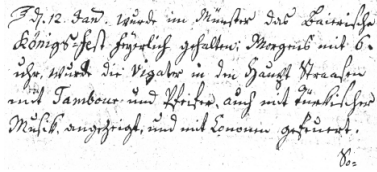 d. 12. Jan. wurde im Münster das Baierische
Königs-Fest feyerlich gehalten; Morgens mit 6.
uhr, wurde die in den Haupt Straasen
mit Tambour und Pfeifer, auch mit türkischer
Musik, angezeigt, und mit Canonen gefeuert.
So-